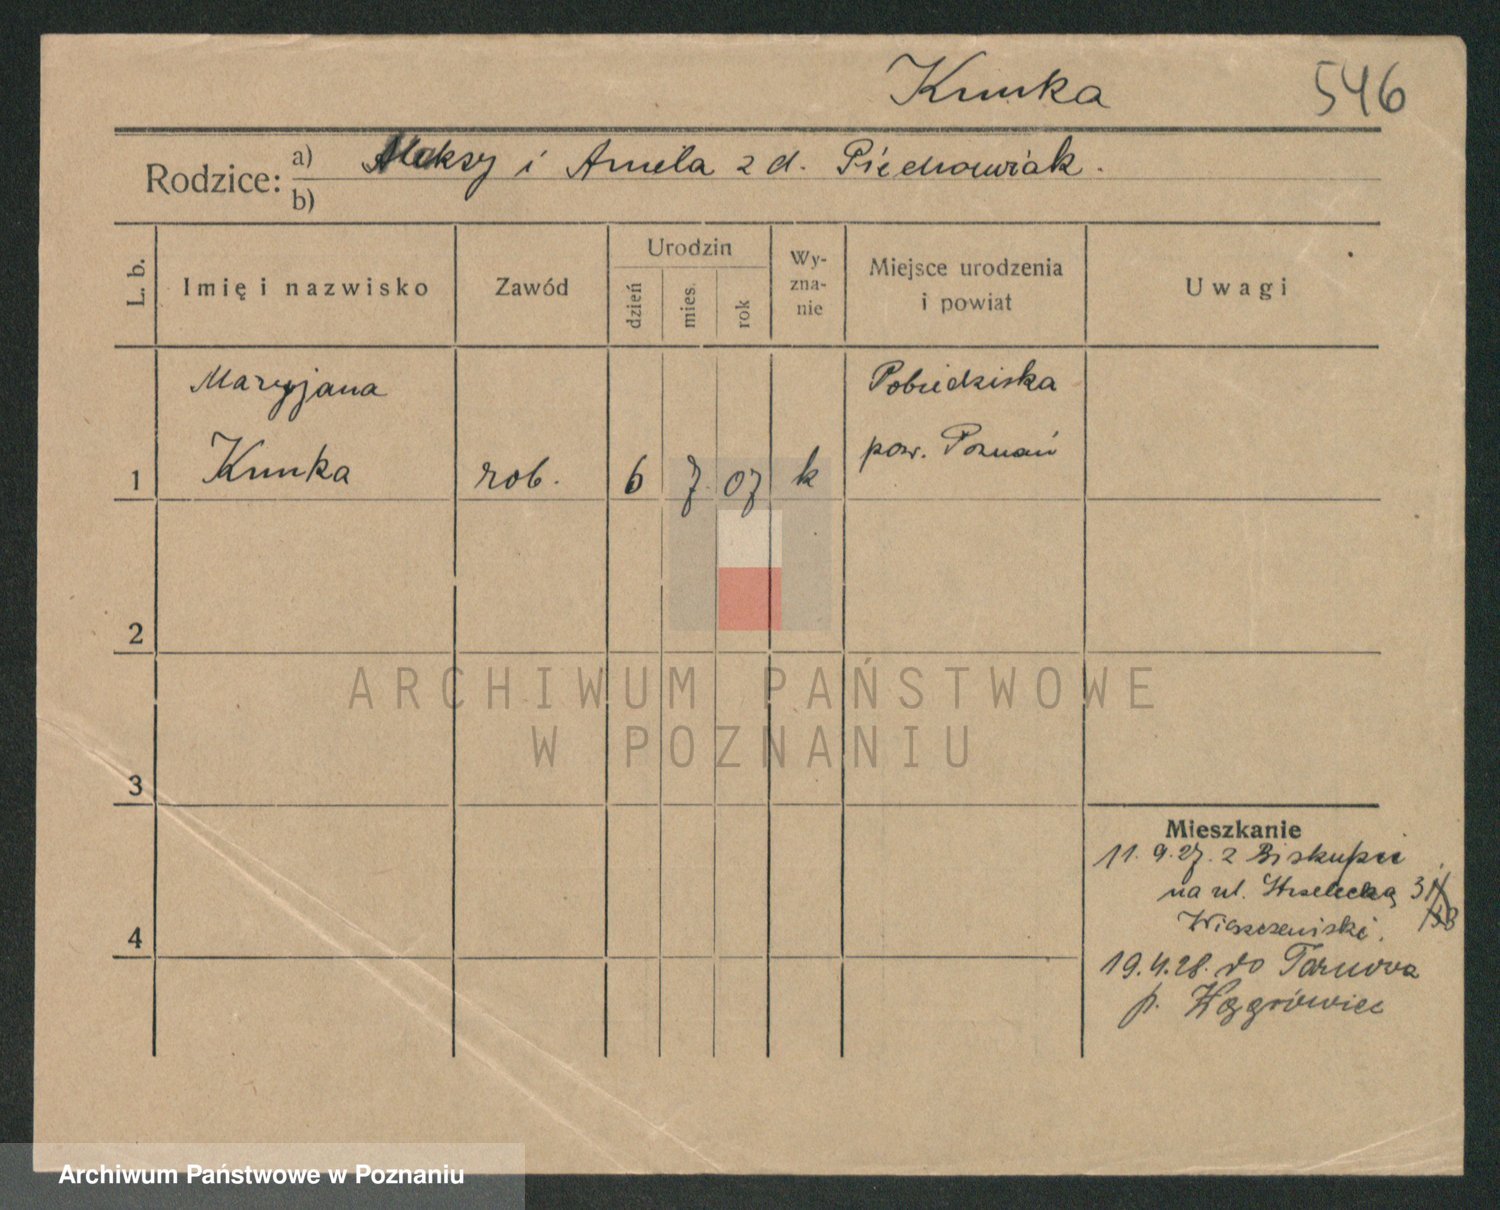 Kmuka 546
Rodzice: a) Aleksy i Aniela z d. Piechowiak.
b)
L. b.
Imię i nazwisko
Zawód
Urodzin
dzień
mies.
rok
Wy-
zna-
nie
Miejsce urodzenia
i powiat
Uwagi
Maryjana
Kmuka
1
rob.
6 7. 07
k
Pobiedziska
pow. Poznań
2
ARCHIWUM PAŃSTWOWE
W POZNANIU
3
4
Mieszkanie
11. 9. 27. z Biskupic
na ul. Strzelecką
19. 4. 28. do Tarnowa
p. Wągrówiec
Archiwum Państwowe w Poznaniu